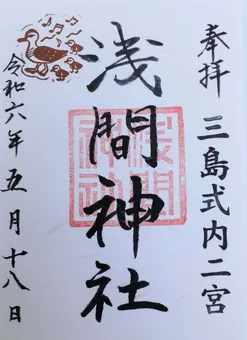 奉拝 三島式内二宮
浅間神社
令和六年五月十八日